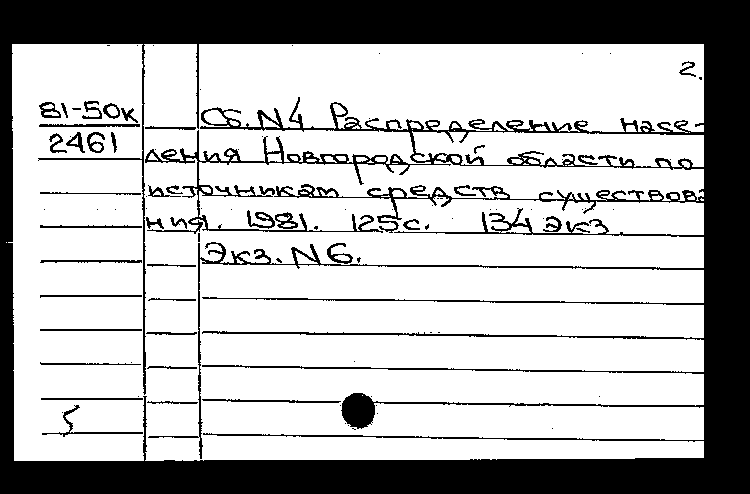 2.
81-50к
2461
Сб. N4. Распределение насе-
ления Новгородской области по
источникам средств существова
ния. 1981. 125с. 134 экз.
Экз. N6.
5